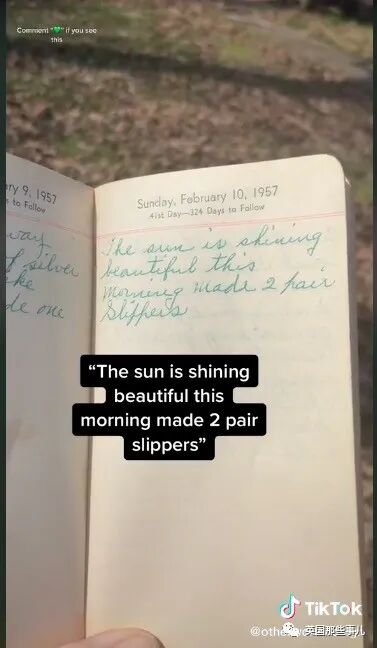 Comment "💚" if you see
this
ry 9, 1957
s to Follow
way
silver
ke
de one
Sunday, February 10, 1957
41st Day—324 Days to Follow
The sun is shining
beautiful this
morning made 2 pair
slippers
"The sun is shining
beautiful this
morning made 2 pair
slippers"
TikTok
英国那些事儿